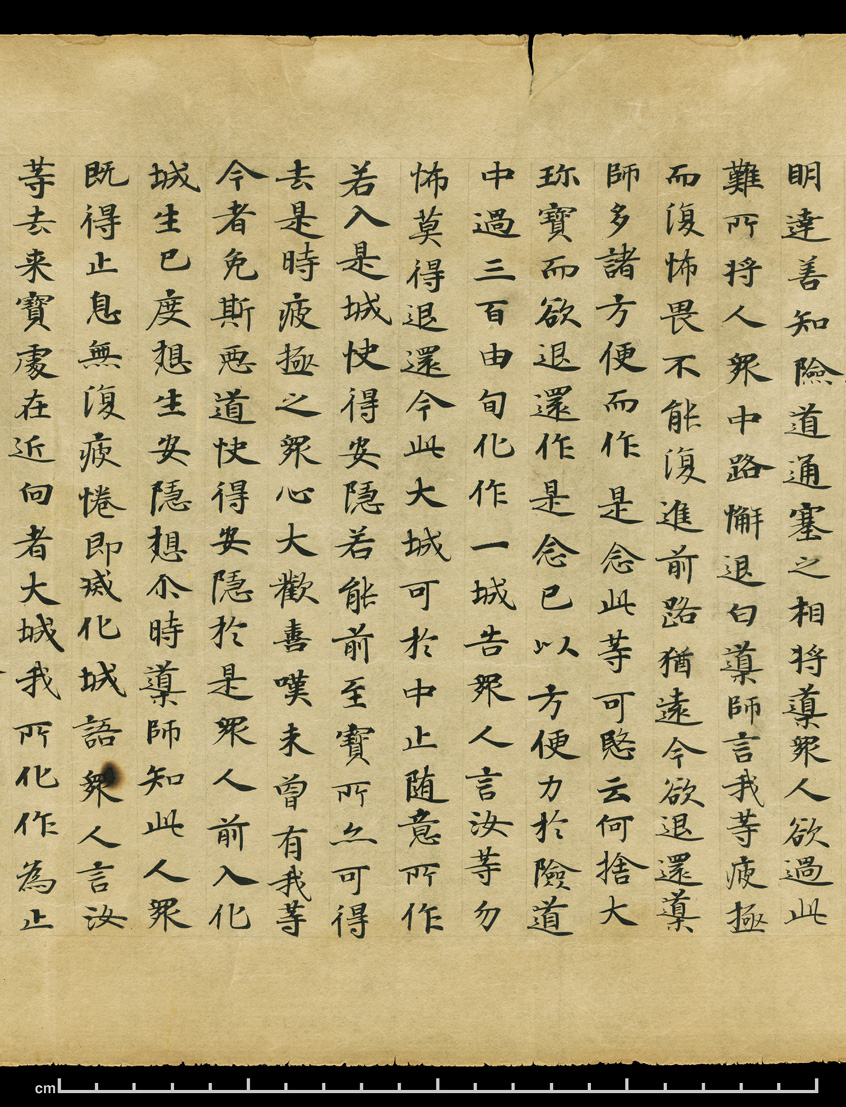 明達善知險道通塞之相将䆃眾人欲過此
難所将人眾中路懈退白䆃師言我等疲極
而復怖畏不能復進前路猶遠今欲退還䆃
師多諸方便而作是念此等可愍云何捨大
珎寶而欲退還作是念已以方便力於險道
中過三百由旬化作一城告眾人言汝等勿
怖莫得退還今此大城可於中止随意所作
若入是城快得安隱若能前至寶所亦可得
去是時疲極之眾心大歡喜嘆未曾有我等
今者免斯惡道快得安隱於是眾人前入化
城生已度想生安隱想尒時䆃師知此人眾
既得止息無復疲惓即滅化城語眾人言汝
等去来寶處在近向者大城我所化作為止
cm